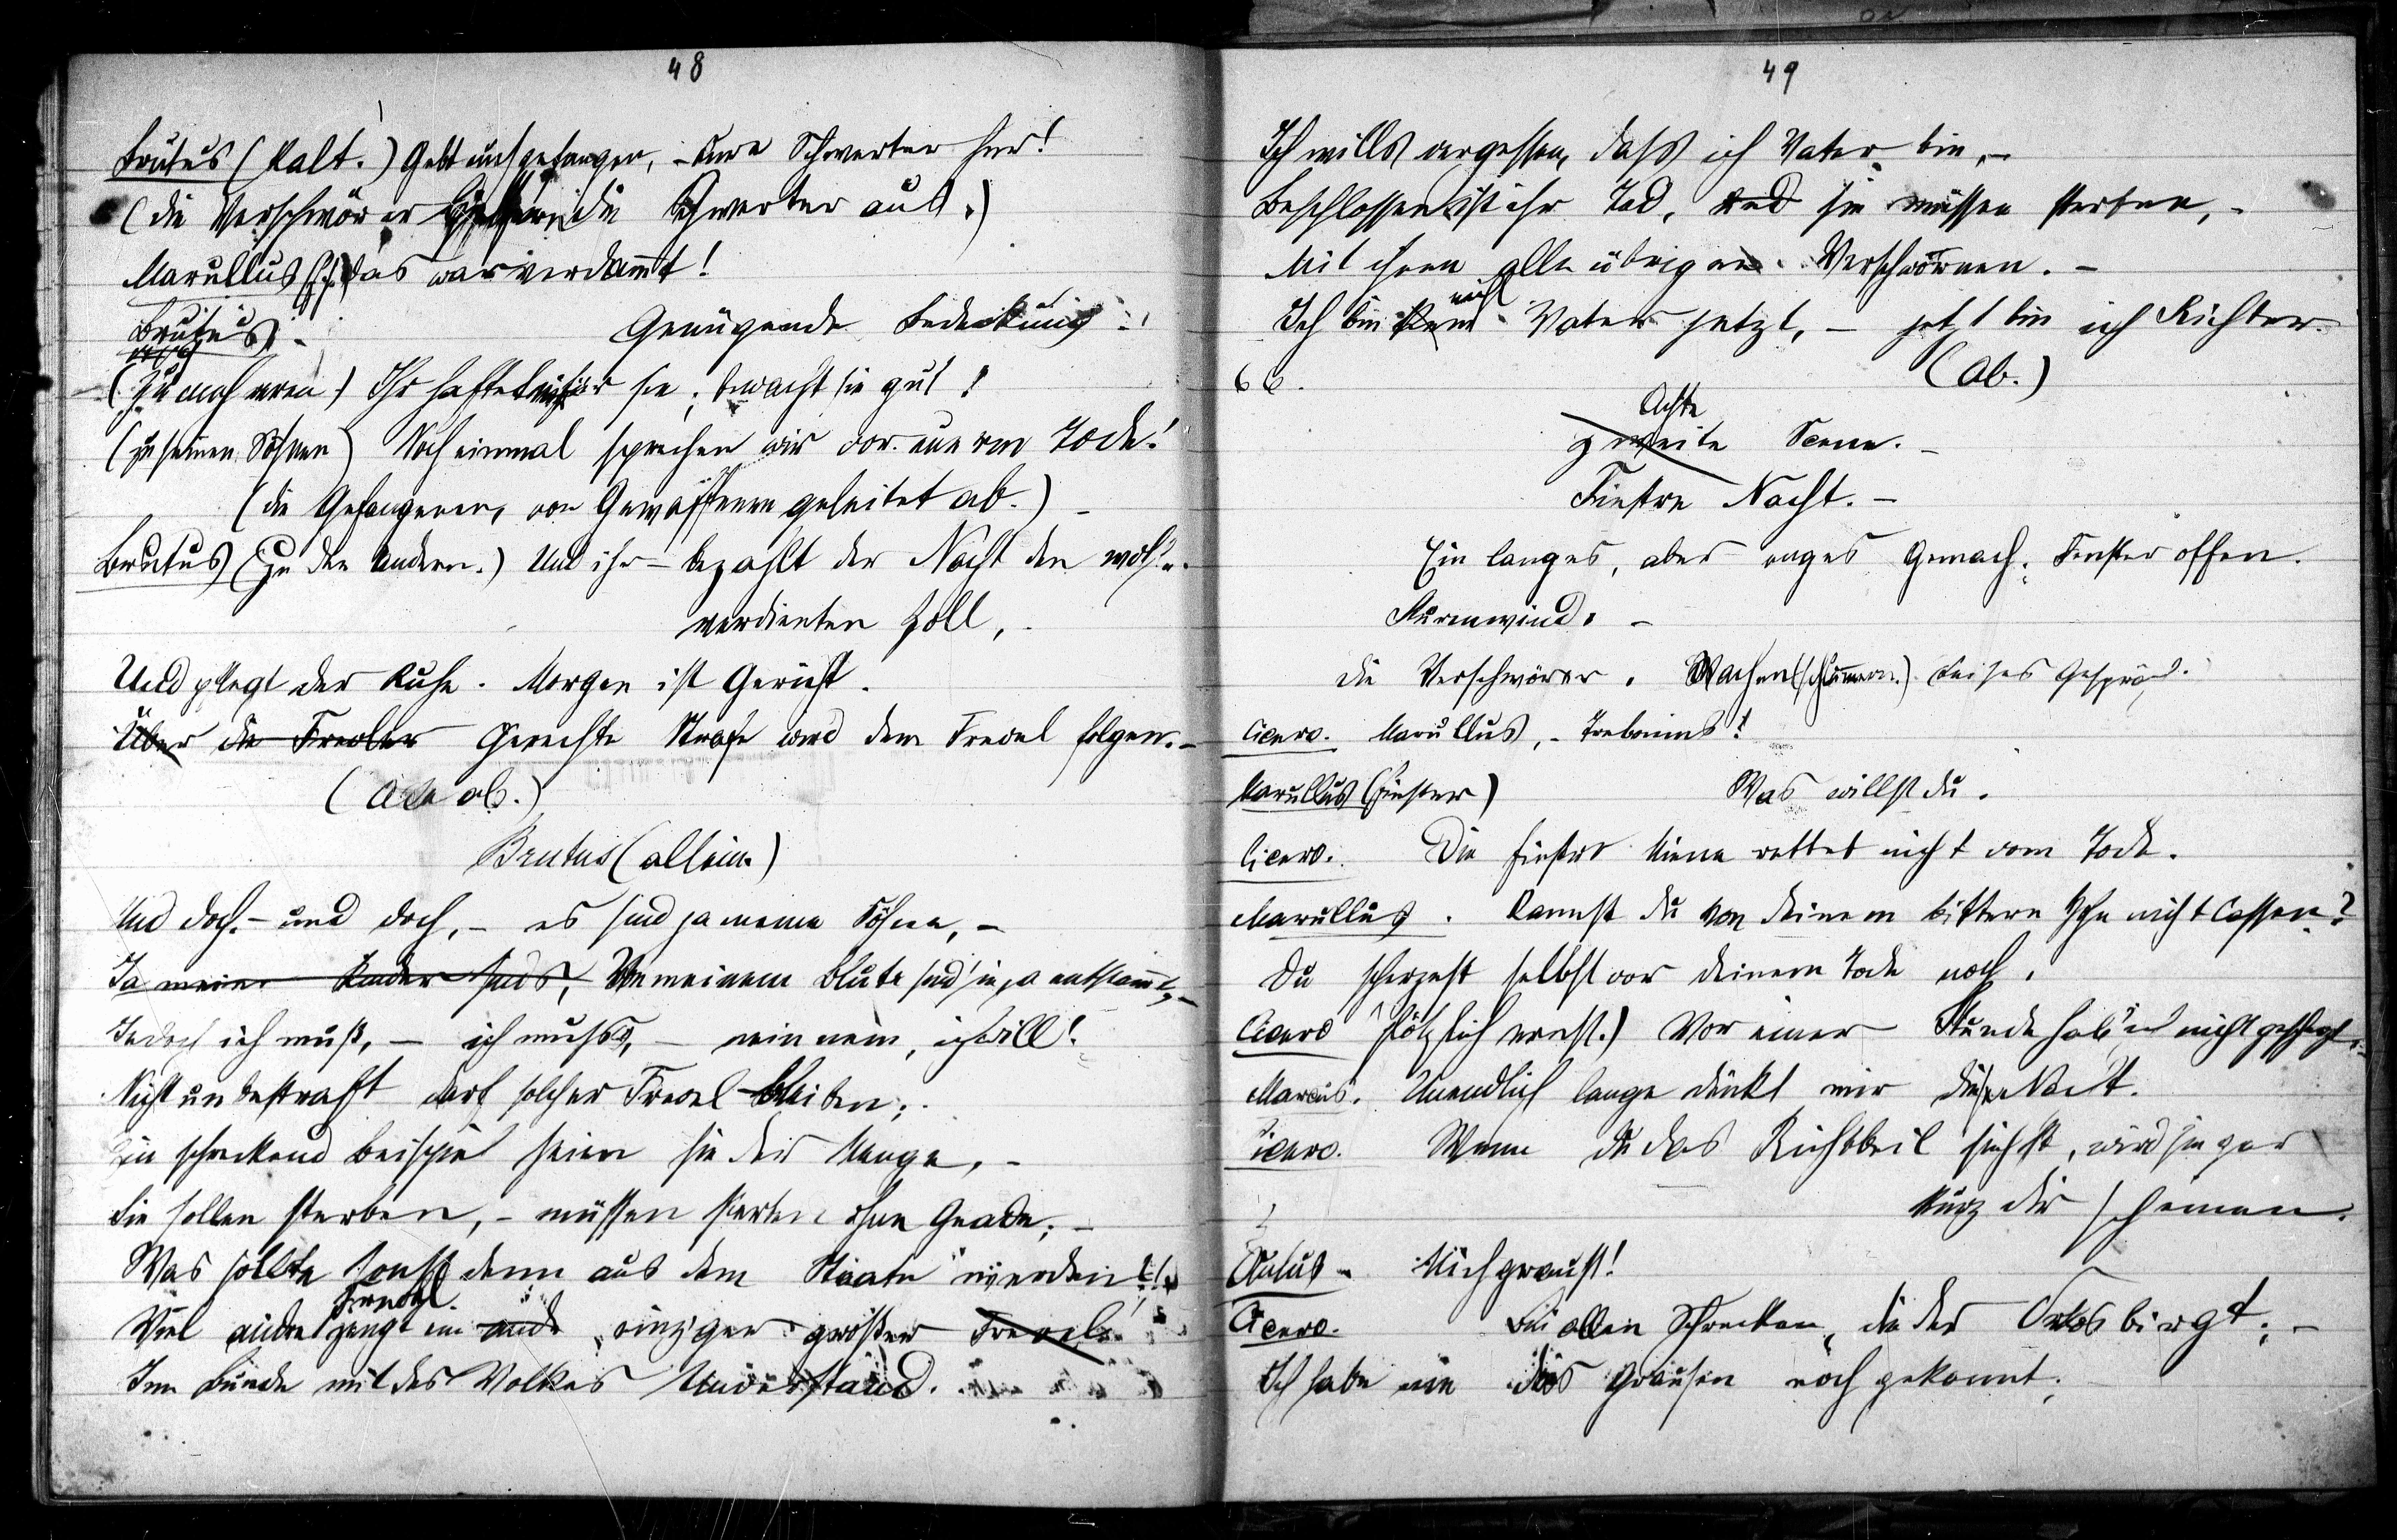 48
Brutus (kalt.) Gebt euch gefangen, - eure Schwerter her!
(die Verschwörer liefern die Schwerter aus.)
Marullus das war verdammt!
Brutus. Genügende Bedeckung
(zu mehreren) Ihr haftet für sie; bewacht sie gut!
(zu seinen Söhnen) Noch einmal sprechen wir vor eurem Tode!
(die Gefangenen, von Gewaffneten geleitet ab.) -
Brutus (Zu den Andern.) Und ihr - bezahlt der Nacht den wohl-
verdienten Zoll, -
Und pflegt der Ruhe. Morgen ist Gericht.
Über die Frevler Gerechte Strafe wird dem Frevel folgen. -
(Alle ab.)
Brutus (allein.)
Und doch, - und doch, - es sind ja meine Söhne, -
Ja meine Kinder sinds, Von meinem Blute sind sie ja entstammt, -
Jedoch ich muß, - ich muß, - nein nein, ich will!
Nicht unbestraft darf solcher Frevel bleiben;
Ein schreckend Beispiel seien sie der Menge, -
Sie sollen sterben, - müssen sterben ohne Gnade; -
Was sollte sonst denn aus dem Staate werden!
Frevel
Viel andre zeugt ein einziger großer Frevel
Im Bunde mit des Volkes Unverstand.
49
Ich wills vergessen, daß ich Vater bin, -
Beschlossen ist ihr Tod, und sie müssen sterben, -
Mit ihnen alle übrigen Verschwörnen. -
nicht
Ich bin kein Vater jetzt, - jetzt bin ich Richter.
66. (Ab.)
Achte
zweite Scene. -
Finstre Nacht. -
Ein langes, aber enges Gemach; Fenster offen.
Sturmwind. -
Die Verschwörer. Wachen (schlummern.) Leises Gespräch.
Cicero. Marullus, - Trebonius!
Marullus (finster) Was willst du.
Cicero. Die finstre Miene rettet nicht vom Tode.
Marullus. Kannst du von deinem bittern Hohn nicht lassen?
Du scherzest selbst vor deinem Tode noch.
Cicero (plötzlich ernst.) Vor einer Stunde hab' ich nicht gescherzt.
Marcus. Unendlich lange dünkt mir diese Nacht.
Cicero. Wenn du das Richtbeil siehst, wird sie gar
kurz dir scheinen.
Aulus - Mich graust!
Cicero. Bei allen Schrecken, die der Orkos birgt; -
Ich habe nie das Grausen noch gekannt;